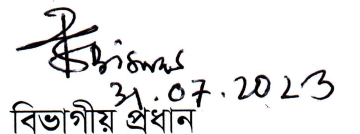 Biswas
31.07.2023
বিভাগীয় প্রধান